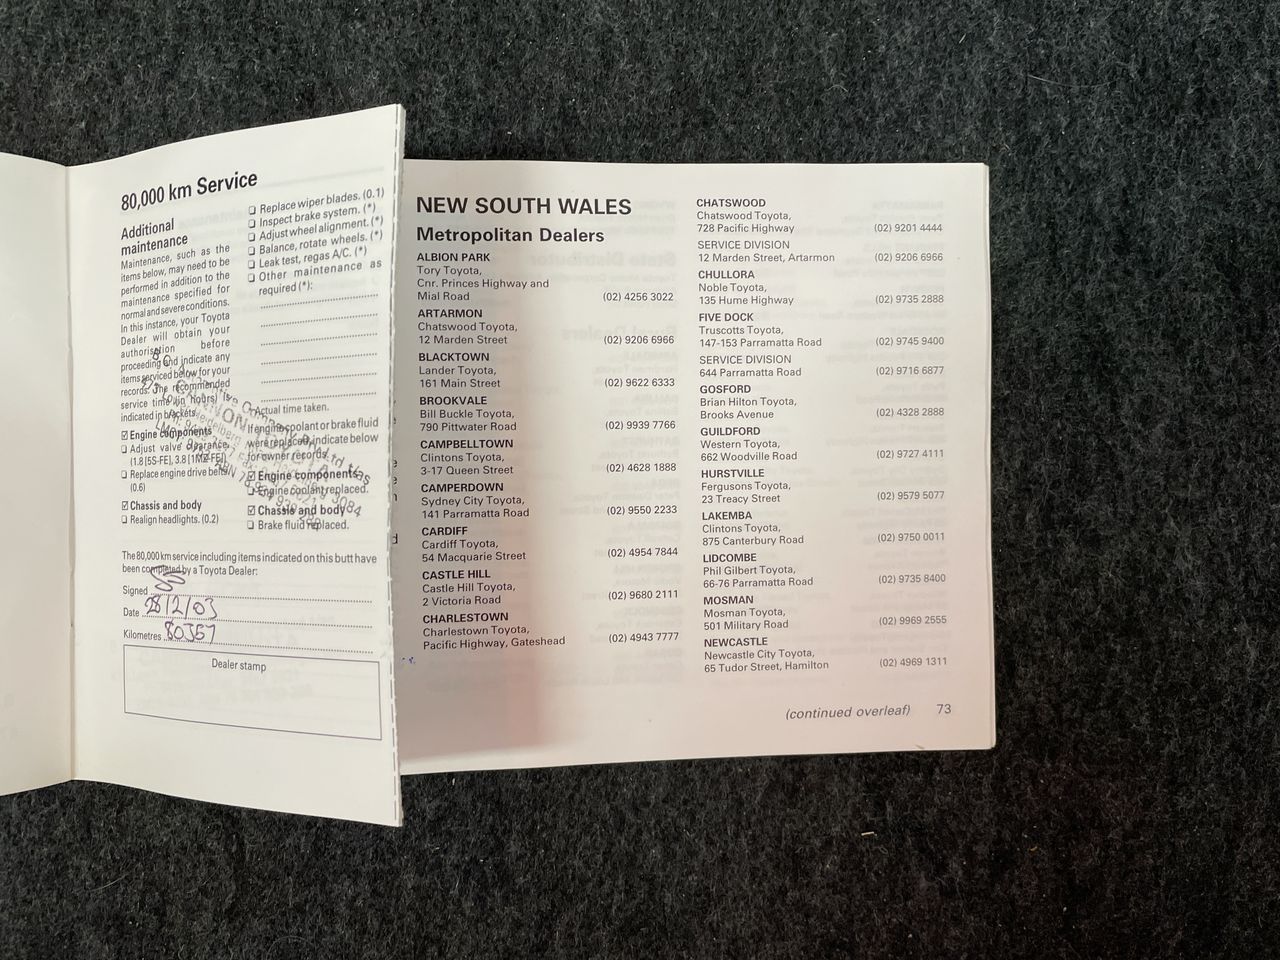 80,000 km Service
Additional
maintenance
Maintenance, such as the
items below, may need to be
performed in addition to the
maintenance specified for
normal and severe conditions.
In this instance, your Toyota
Dealer will obtain your
authorisation before
proceeding and indicate any
items serviced below for your
records. The recommended
service time (in hours) is
indicated in brackets.
☑ Engine components
❏ Adjust valve clearance.
(1.8 [5S-FE], 3.8 [1MZ-FE])
❏ Replace engine drive belts.
(0.6)
☑ Chassis and body
❏ Realign headlights. (0.2)
❏ Replace wiper blades. (0.1)
❏ Inspect brake system. (*)
❏ Adjust wheel alignment. (*)
❏ Balance, rotate wheels. (*)
❏ Leak test, regas A/C. (*)
❏ Other maintenance as
required (*):
*Actual time taken.
If engine coolant or brake fluid
were replaced, indicate below
for owner records.
☑ Engine components
❏ Engine coolant replaced.
☑ Chassis and body
❏ Brake fluid replaced.
The 80,000 km service including items indicated on this butt have
been completed by a Toyota Dealer:
Signed
Date 28/2/03
Kilometres 80357
Dealer stamp
NEW SOUTH WALES
Metropolitan Dealers
ALBION PARK
Tory Toyota,
Cnr. Princes Highway and
Mial Road (02) 4256 3022
ARTARMON
Chatswood Toyota,
12 Marden Street (02) 9206 6966
BLACKTOWN
Lander Toyota,
161 Main Street (02) 9622 6333
BROOKVALE
Bill Buckle Toyota,
790 Pittwater Road (02) 9939 7766
CAMPBELLTOWN
Clintons Toyota,
3-17 Queen Street (02) 4628 1888
CAMPERDOWN
Sydney City Toyota,
141 Parramatta Road (02) 9550 2233
CARDIFF
Cardiff Toyota,
54 Macquarie Street (02) 4954 7844
CASTLE HILL
Castle Hill Toyota,
2 Victoria Road (02) 9680 2111
CHARLESTOWN
Charlestown Toyota,
Pacific Highway, Gateshead (02) 4943 7777
CHATSWOOD
Chatswood Toyota,
728 Pacific Highway (02) 9201 4444
SERVICE DIVISION
12 Marden Street, Artarmon (02) 9206 6966
CHULLORA
Noble Toyota,
135 Hume Highway (02) 9735 2888
FIVE DOCK
Truscotts Toyota,
147-153 Parramatta Road (02) 9745 9400
SERVICE DIVISION
644 Parramatta Road (02) 9716 6877
GOSFORD
Brian Hilton Toyota,
Brooks Avenue (02) 4328 2888
GUILDFORD
Western Toyota,
662 Woodville Road (02) 9727 4111
HURSTVILLE
Fergusons Toyota,
23 Treacy Street (02) 9579 5077
LAKEMBA
Clintons Toyota,
875 Canterbury Road (02) 9750 0011
LIDCOMBE
Phil Gilbert Toyota,
66-76 Parramatta Road (02) 9735 8400
MOSMAN
Mosman Toyota,
501 Military Road (02) 9969 2555
NEWCASTLE
Newcastle City Toyota,
65 Tudor Street, Hamilton (02) 4969 1311
(continued overleaf) 73